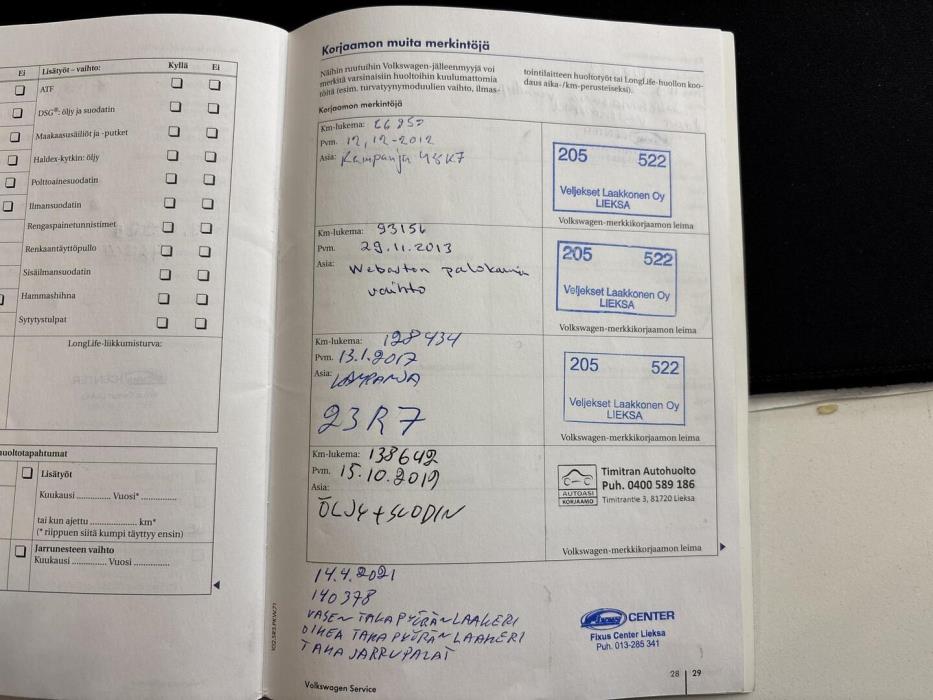 Ei Lisätyöt – vaihto: Kyllä Ei
ATF
DSG®: öljy ja suodatin
Maakaasusäiliöt ja -putket
Haldex-kytkin: öljy
Polttoainesuodatin
Ilmansuodatin
Rengaspainetunnistimet
Renkaantäyttöpullo
Sisäilmansuodatin
Hammashihna
Sytytystulpat
LongLife-liikkumisturva:
uoltotapahtumat
Lisätyöt
Kuukausi ............. Vuosi* .............
tai kun ajettu .................. km*
(* riippuen siitä kumpi täyttyy ensin)
Jarrunesteen vaihto
Kuukausi ............. Vuosi .............
Korjaamon muita merkintöjä
Näihin ruutuihin Volkswagen-jälleenmyyjä voi
merkitä varsinaisiin huoltoihin kuulumattomia
töitä (esim. turvatyynymoduulien vaihto, ilmas-
tointilaitteen huoltotyöt tai LongLife-huollon koo-
daus aika-/km-perusteiseksi).
Korjaamon merkintöjä
Km-lukema: 66950
Pvm. 12,12-2012
Asia: Kampanja
205 522
Veljekset Laakkonen Oy
LIEKSA
Volkswagen-merkkikorjaamon leima
Km-lukema: 93156
Pvm. 29.11.2013
Asia: Webaston
vaihto
205 522
Veljekset Laakkonen Oy
LIEKSA
Volkswagen-merkkikorjaamon leima
Km-lukema: 128434
Pvm. 13.1.2017
Asia: KAMPANJA
23R7
205 522
Veljekset Laakkonen Oy
LIEKSA
Volkswagen-merkkikorjaamon leima
Km-lukema: 138642
Pvm. 15.10.2019
Asia:
ÖLJY + SUODIN
Timitran Autohuolto
Puh. 0400 589 186
Timitrantie 3, 81720 Lieksa
AUTOASI
KORJAAMO
Volkswagen-merkkikorjaamon leima
14.4.2021
140378
VASEN TAKAPYÖRÄN LAAKERI
OIKEA TAKAPYÖRÄN LAAKERI
TAKA JARRUPALAT
Fixus CENTER
Fixus Center Lieksa
Puh. 013-285 341
102.5R3.PKW.71
Volkswagen Service
28 29